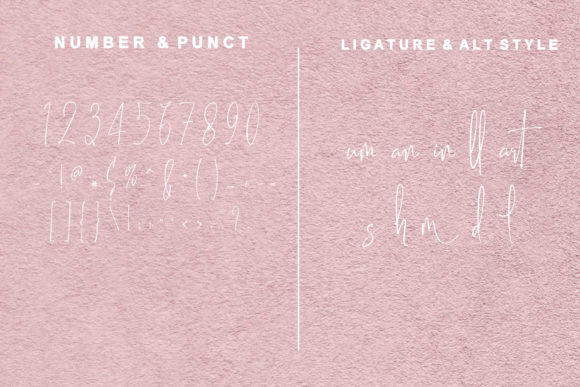 NUMBER & PUNCT
1234567890
!@#$%^&*()_
[]{}\|
LIGATURE & ALT STYLE
um an in ll art
s h m d t